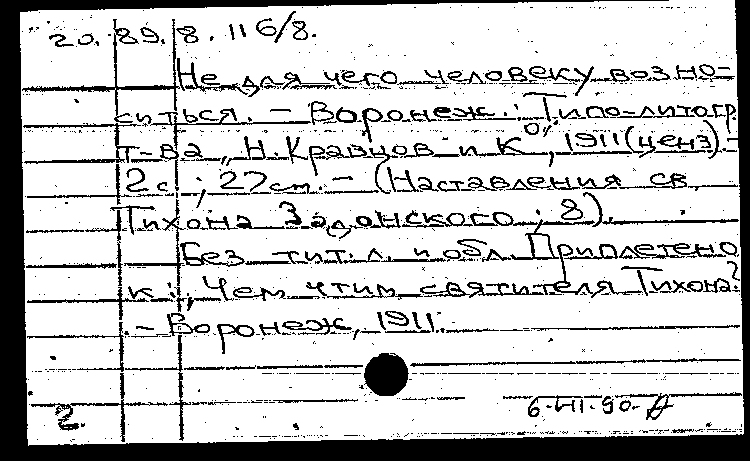 20.89.8.116/8.
Не для чего человеку возно-
ситься. – Воронеж.: Типо-литогр.
т-ва „Н. Кравцов и К⁰“, 1911 (ценз). –
2 с.; 27 см. – (Наставления св.
Тихона Задонского; 8).
Без тит. л. и обл. Приплетено
к: „Чем чтим святителя Тихона?
. – Воронеж, 1911.
2.